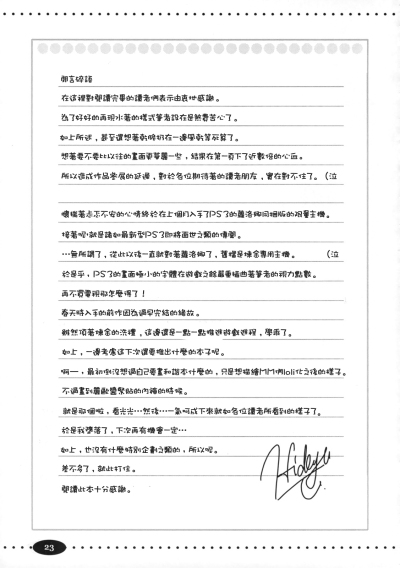 胡言碎語
在這裡對閱讀完畢的讀者們表示由衷地感謝。
為了好好的再現水著的樣式筆者設在是煞費苦心了。
如上所述，甚至還想著乾脆扔在一邊學乾算死算了。
想著要不要比以往的畫面更華麗一些，結果在第一頁下了近數倍的心血。
所以造成作品發展的延遲，對於各位期待著的讀者朋友，實在對不住了。（泣
懷揣著忐忑不安的心情終於在上個月入手了PS3的蘿洛娜同捆版的限量主機。
接著呢!就是諸如最新型PS3即將面世之類的傳聞。
…無所謂了，從此以後一直就對著蘿洛娜了，舊檔是煉金專用主機。 （泣
於是乎，PS3的畫面極小的字體在遊戲之餘嚴重損害著筆者的視力點數。
再不買電視那怎麼得了！
春天時入手的前作因為過早完結的緣故。
既然頂著煉金的洗禮，這邊還是一點一點推進遊戲進程，學乖了。
如上，一邊考慮這下次還要推出什麼的本子呢。
啊—，最初倒沒想過自己要畫和諧本什麼的，只是想描繪MM們loli化之後的樣子。
不過畫到蕾歐蕾緊貼的內褲的時候。
就是那個啦，春光光…然後…一氣呵成下來就如各位讀者所看到的樣子了。
於是我墮落了，下次再有機會一定…
如上，也沒有什麼特別企劃之類的，所以呢。
差不多了，就此打住。
閱讀此本十分感謝。
23